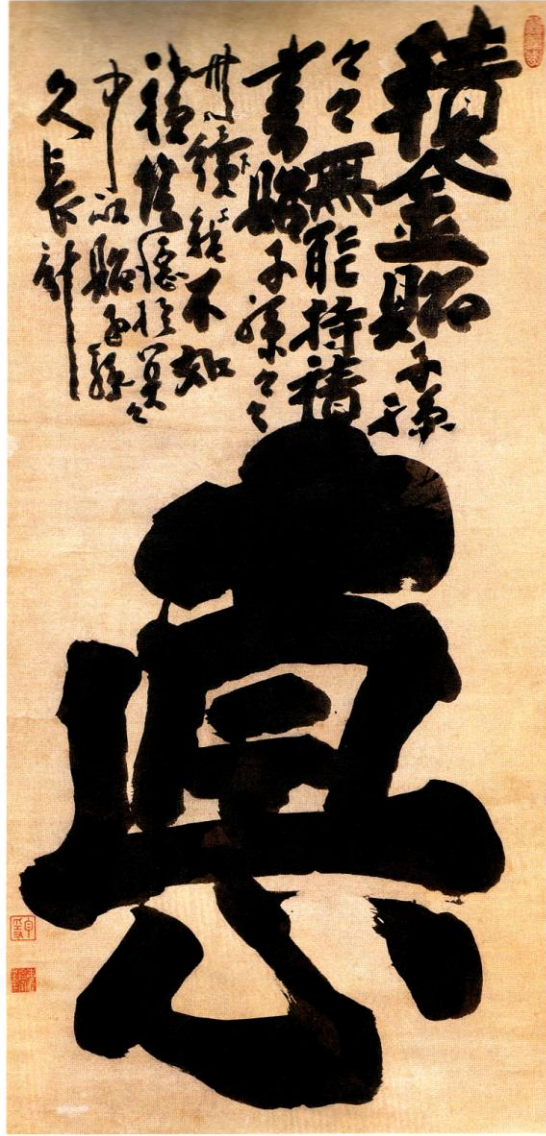 積金貽子孫
々々無能持積
書貽子孫々々
不如
積陰德於冥々
中以貽子孫
久長計
悳